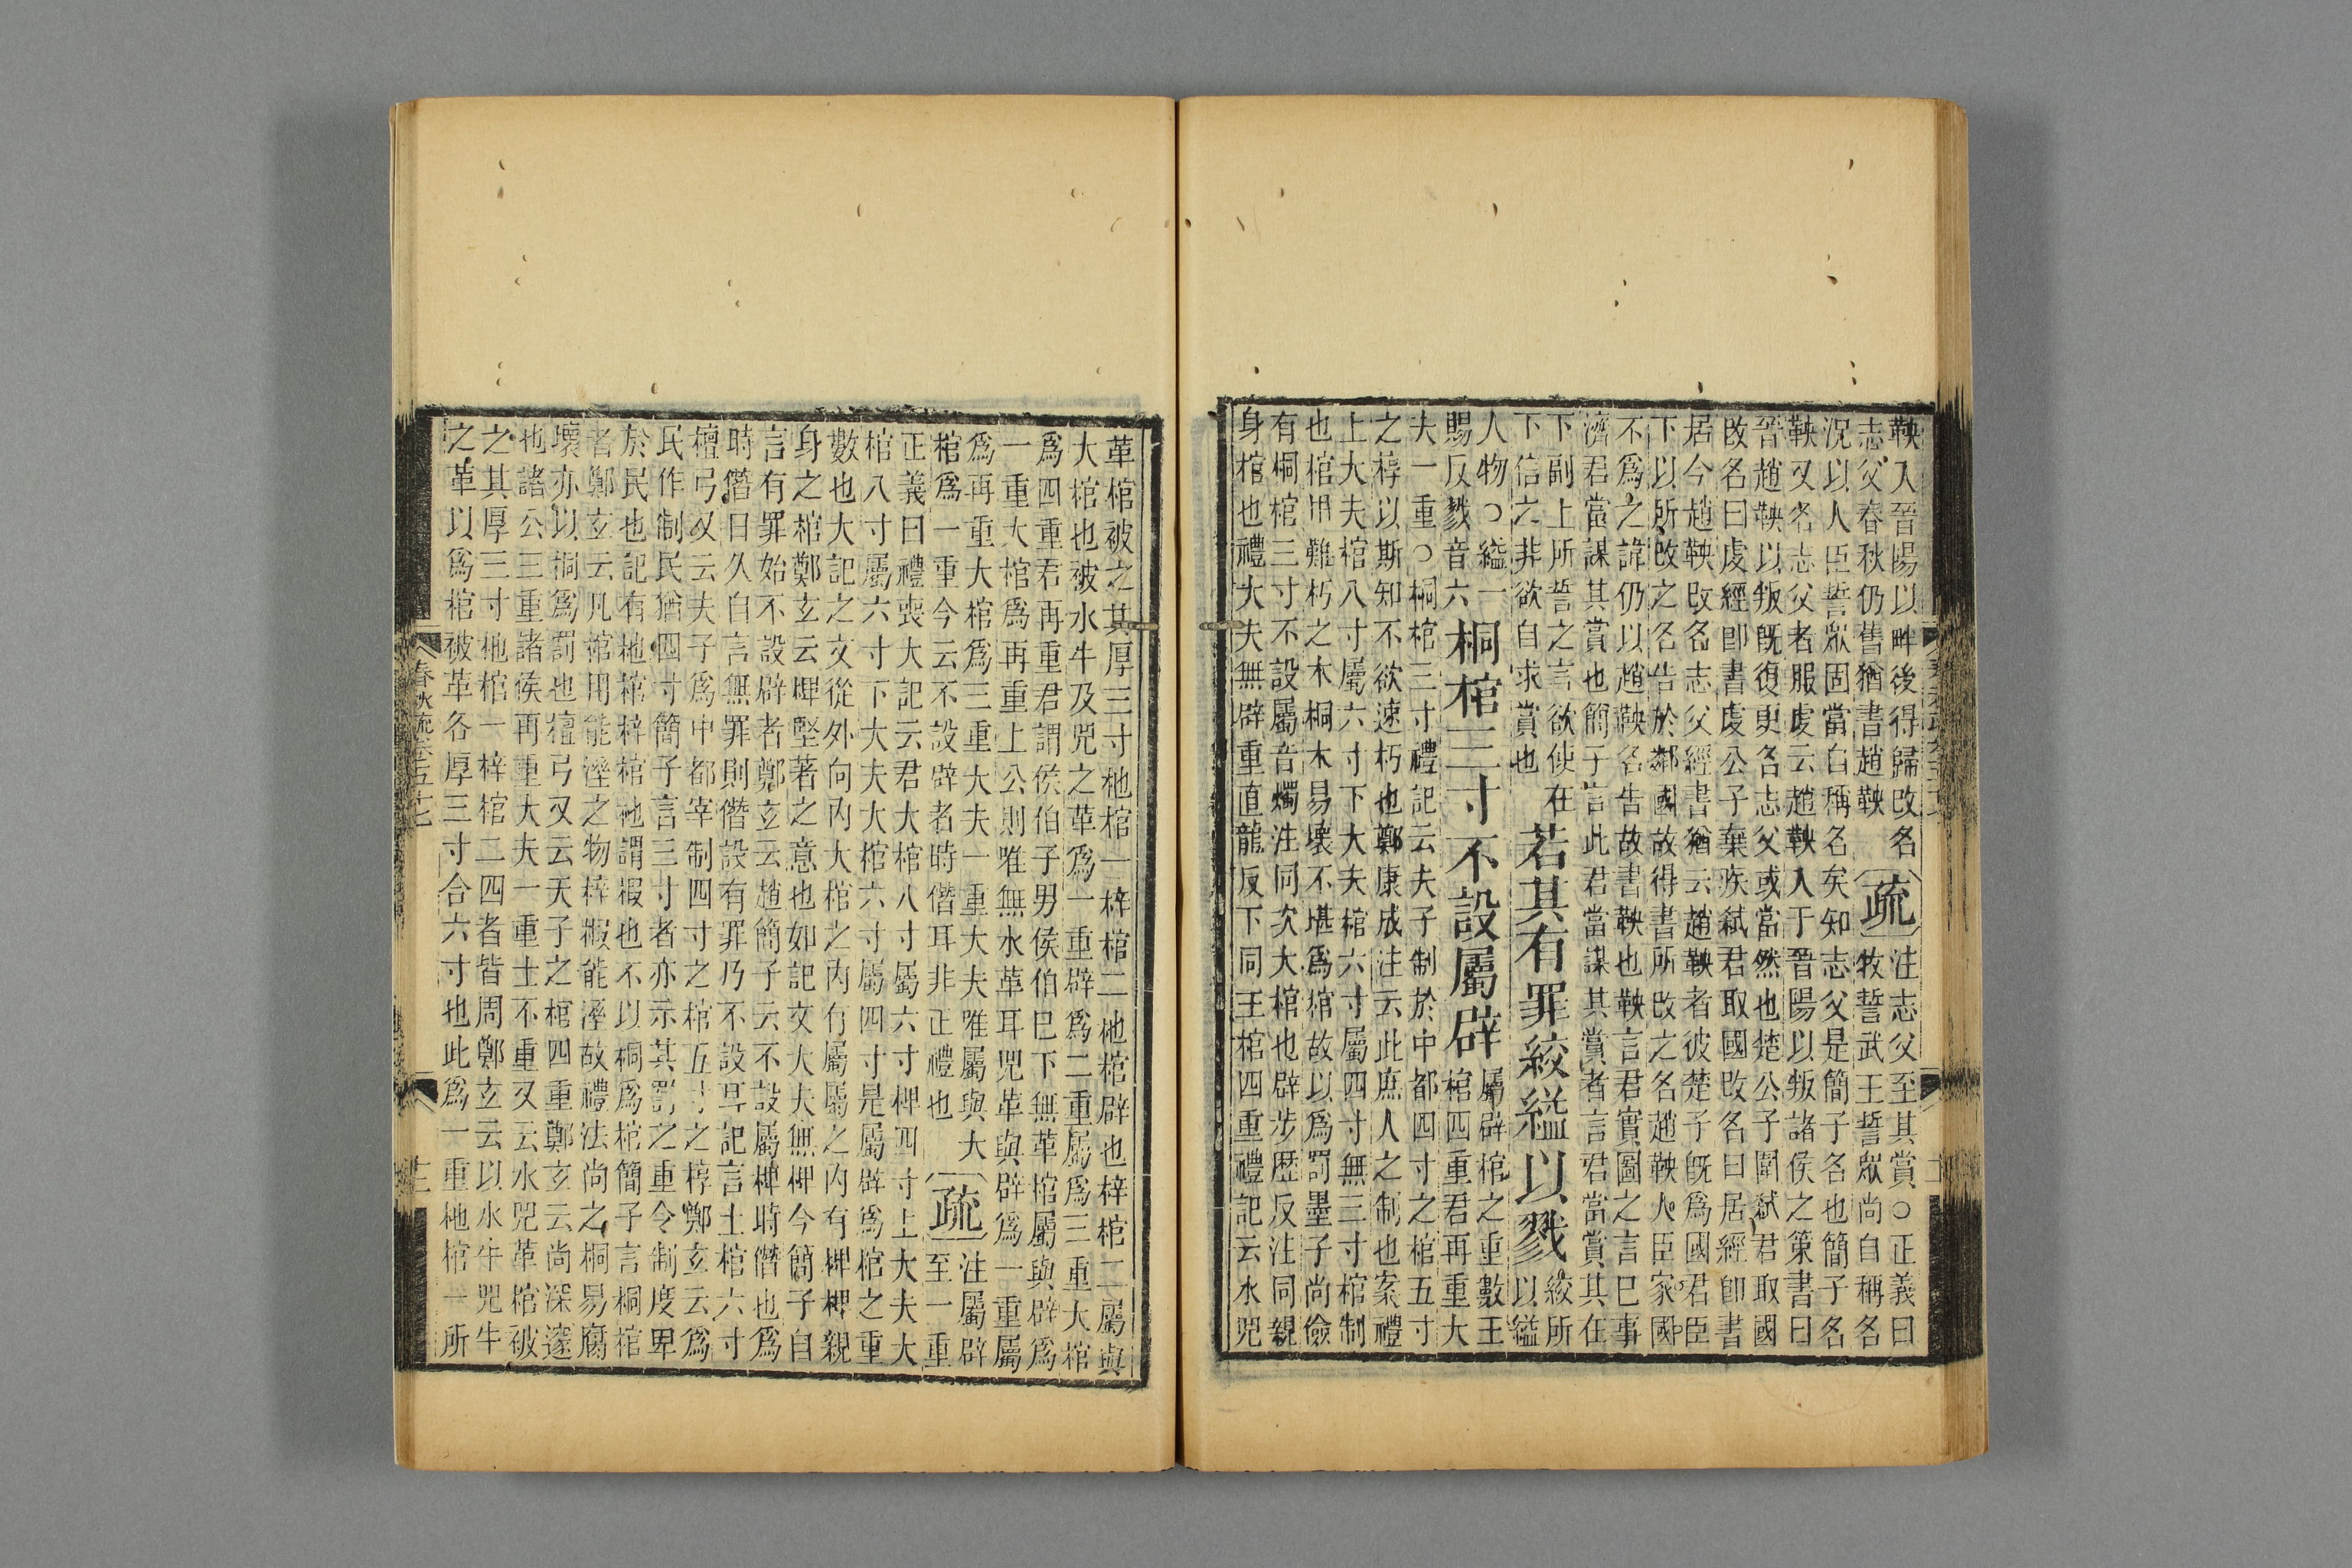 鞅入晉陽以畔後得歸改名
志父春秋仍舊猶書趙鞅
疏
注志父至其賞○正義曰
牧誓武王誓眾尚自稱名
況以人臣誓眾固當自稱名矣知志父是簡子名也簡子名
鞅又名志父者服虔云趙鞅入于晉陽以叛諸侯之策書曰
晉趙鞅以叛旣復更名志父或當然也楚公子圍弑君取國
改名曰虔經卽書虔公子棄疾弑君取國改名曰居經卽書
居今趙鞅改名志父經書猶云趙鞅者彼楚子旣爲國君臣
下以所改之名告於鄰國故得書所改之名趙鞅人臣家國
不爲之諱仍以趙鞅名告故書鞅也鞅言君實圖之言巳事
濟君當謀其賞也簡子言此君當謀其賞者言君當賞其在
下副上所誓之言欲使在
下信之非欲自求賞也
若其有罪絞縊以戮
絞所
以縊
人物○縊一
賜反戮音六
桐棺三寸不設屬辟
屬辟棺之重數王
棺四重君再重大
夫一重○桐棺三寸禮記云夫子制於中都四寸之棺五寸
之椁以斯知不欲速朽也鄭康成注云此庶人之制也案禮
上大夫棺八寸屬六寸下大夫棺六寸屬四寸無三寸棺制
也棺用難朽之木桐木易壞不堪爲棺故以爲罰墨子尚儉
有桐棺三寸不設屬音燭注同次大棺也辟步歷反注同親
身棺也禮大夫無辟重直龍反下同王棺四重禮記云水兕
革棺被之其厚三寸杝棺一梓棺二杝棺辟也梓棺二屬與
大棺也被水牛及兕之革爲一重辟爲二重屬爲三重大棺
爲四重君再重君謂侯伯子男侯伯巳下無革棺屬與辟爲
一重大棺爲再重上公則唯無水革耳兕革與辟爲一重屬
爲再重大棺爲三重大夫一重大夫唯屬與大
棺爲一重今云不設辟者時僭耳非正禮也
疏
注屬辟
至一重
正義曰禮喪大記云君大棺八寸屬六寸椑四寸上大夫大
棺八寸屬六寸下大夫大棺六寸屬四寸是屬辟爲棺之重
數也大記之文從外向內大棺之內有屬屬之內有椑椑親
身之棺鄭玄云椑堅著之意也如記文大夫無椑今簡子自
言有罪始不設辟者鄭玄云趙簡子云不設屬椑時僭也爲
時僭日久自言無罪則僭設有罪乃不設耳記言士棺六寸
檀弓又云夫子爲中都宰制四寸之棺五寸之椁鄭玄云爲
民作制民猶四寸簡子言三寸者亦示其罰之重令制度卑
於民也記有杝棺梓棺杝謂椵也不以桐爲棺簡子言桐棺
者鄭玄云凡棺用能溼之物梓椵能溼故禮法尚之桐易腐
壞亦以桐爲罰也檀弓又云天子之棺四重鄭玄云尚深邃
也諸公三重諸侯再重大夫一重士不重又云水兕革棺被
之其厚三寸杝棺一梓棺二四者皆周鄭玄云以水牛兕牛
之革以爲棺被革各厚三寸合六寸也此爲一重杝棺一所
春秋疏卷五十七